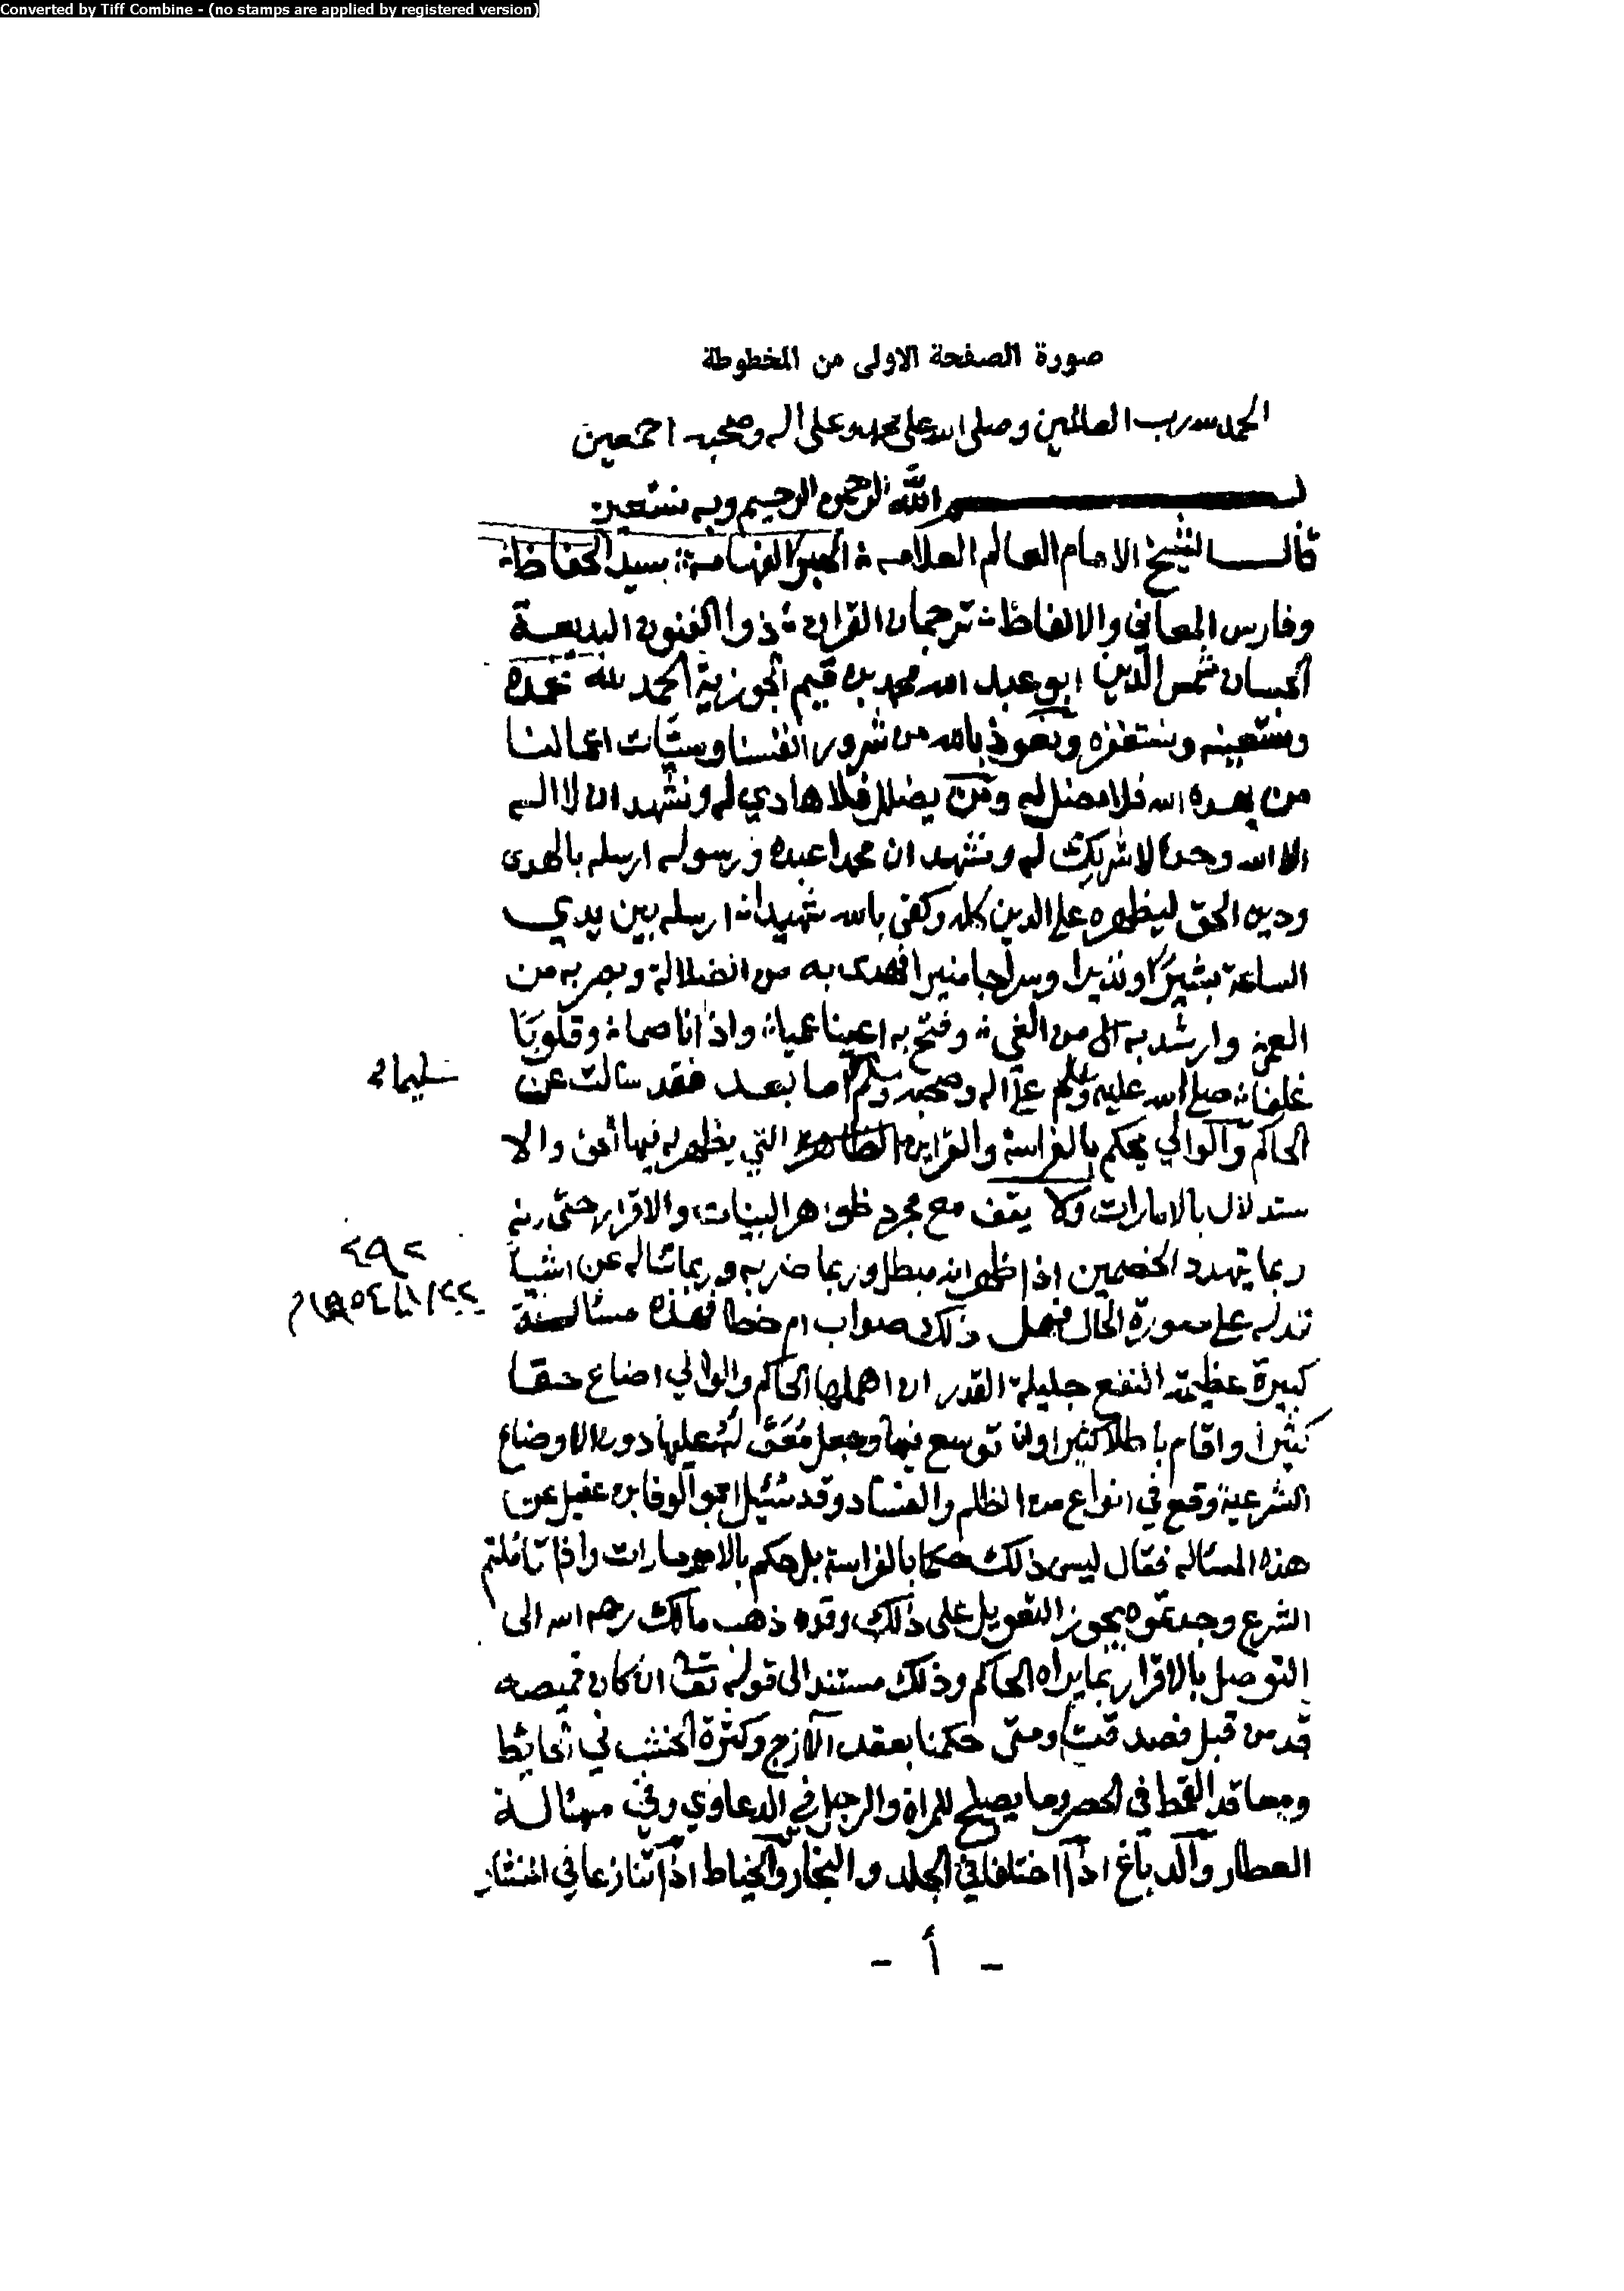 Converted by Tiff Combine - (no stamps are applied by registered version)
صورة الصفحة الاولى من المخطوطة
الحمد لله رب العالمين وصلى الله على محمد وعلى اله وصحبه اجمعين
بسم الله الرحمن الرحيم وبه نستعين
قال الشيخ الامام العالم العلامة الحبر الفهامة سيد الحفاظ
وفارس المعاني والالفاظ ترجمان القران ذو الفنون البديعة
الحسان شمس الدين ابو عبد الله محمد بن قيم الجوزية الحمد لله نحمده
ونستعينه ونستغفره ونعوذ بالله من شرور انفسنا وسيئات اعمالنا
من يهده الله فلا مضل له ومن يضلل فلا هادي له ونشهد ان لا اله
الا الله وحده لا شريك له ونشهد ان محمدا عبده ورسوله ارسله بالهدى
ودين الحق ليظهره على الدين كله وكفى بالله شهيدا ارسله بين يدي
الساعة بشيرا ونذيرا وسراجا منيرا فهدى به من الضلالة وبصر به من
العمى وارشد به من الغي وفتح به اعينا عميا واذانا صما وقلوبا
غلفا صلى الله عليه وسلم على اله وصحبه وسلم اما بعد فقد سالت عن
سليمان
الحاكم والوالي يحكم بالفراسة والقراين التي يظهر له فيها الحق والا
ستدلال بالامارات ولا يقف مع مجرد ظواهر البينات والاقرار حتى انه
ربما يتهدد الخصمين اذا ظهر انه مبطل وربما ضربه وربما ساله عن اشيا
٢٩٢
تدله على صورة الحال فهل ذلك صواب ام خطا فهذه مسالة
كبيرة عظيمة النفع جليلة القدر ان اهملها الحاكم والوالي اضاع حقا
كثيرا واقام باطلا كثيرا وان توسع فيها وجعل معوله عليها دون الاوضاع
الشرعية وقع في انواع من الظلم والفساد وقد سئل ابو الوفا بن عقيل عن
هذه المسالة فقال ليس ذلك حكما بالفراسة بل حكم بالامارات واذا تاملتم
الشرع وجدتموه يجوز التعويل على ذلك وقد ذهب مالك رحمه الله الى
التوصل بالاقرار بما يراه الحاكم وذلك مستند الى قوله تعالى ان كان قميصه
قد من قبل فصدقت ومتى حكمنا بعقد الازج وكثرة الخشب في الحائط
ومعاقد القمط في الخص وما يصلح للمراة والرجل في الدعاوي وفي مسالة
العطار والدباغ اذا اختلفا في الجلد والنجار والخياط اذا تنازعا في المنشار
- أ -